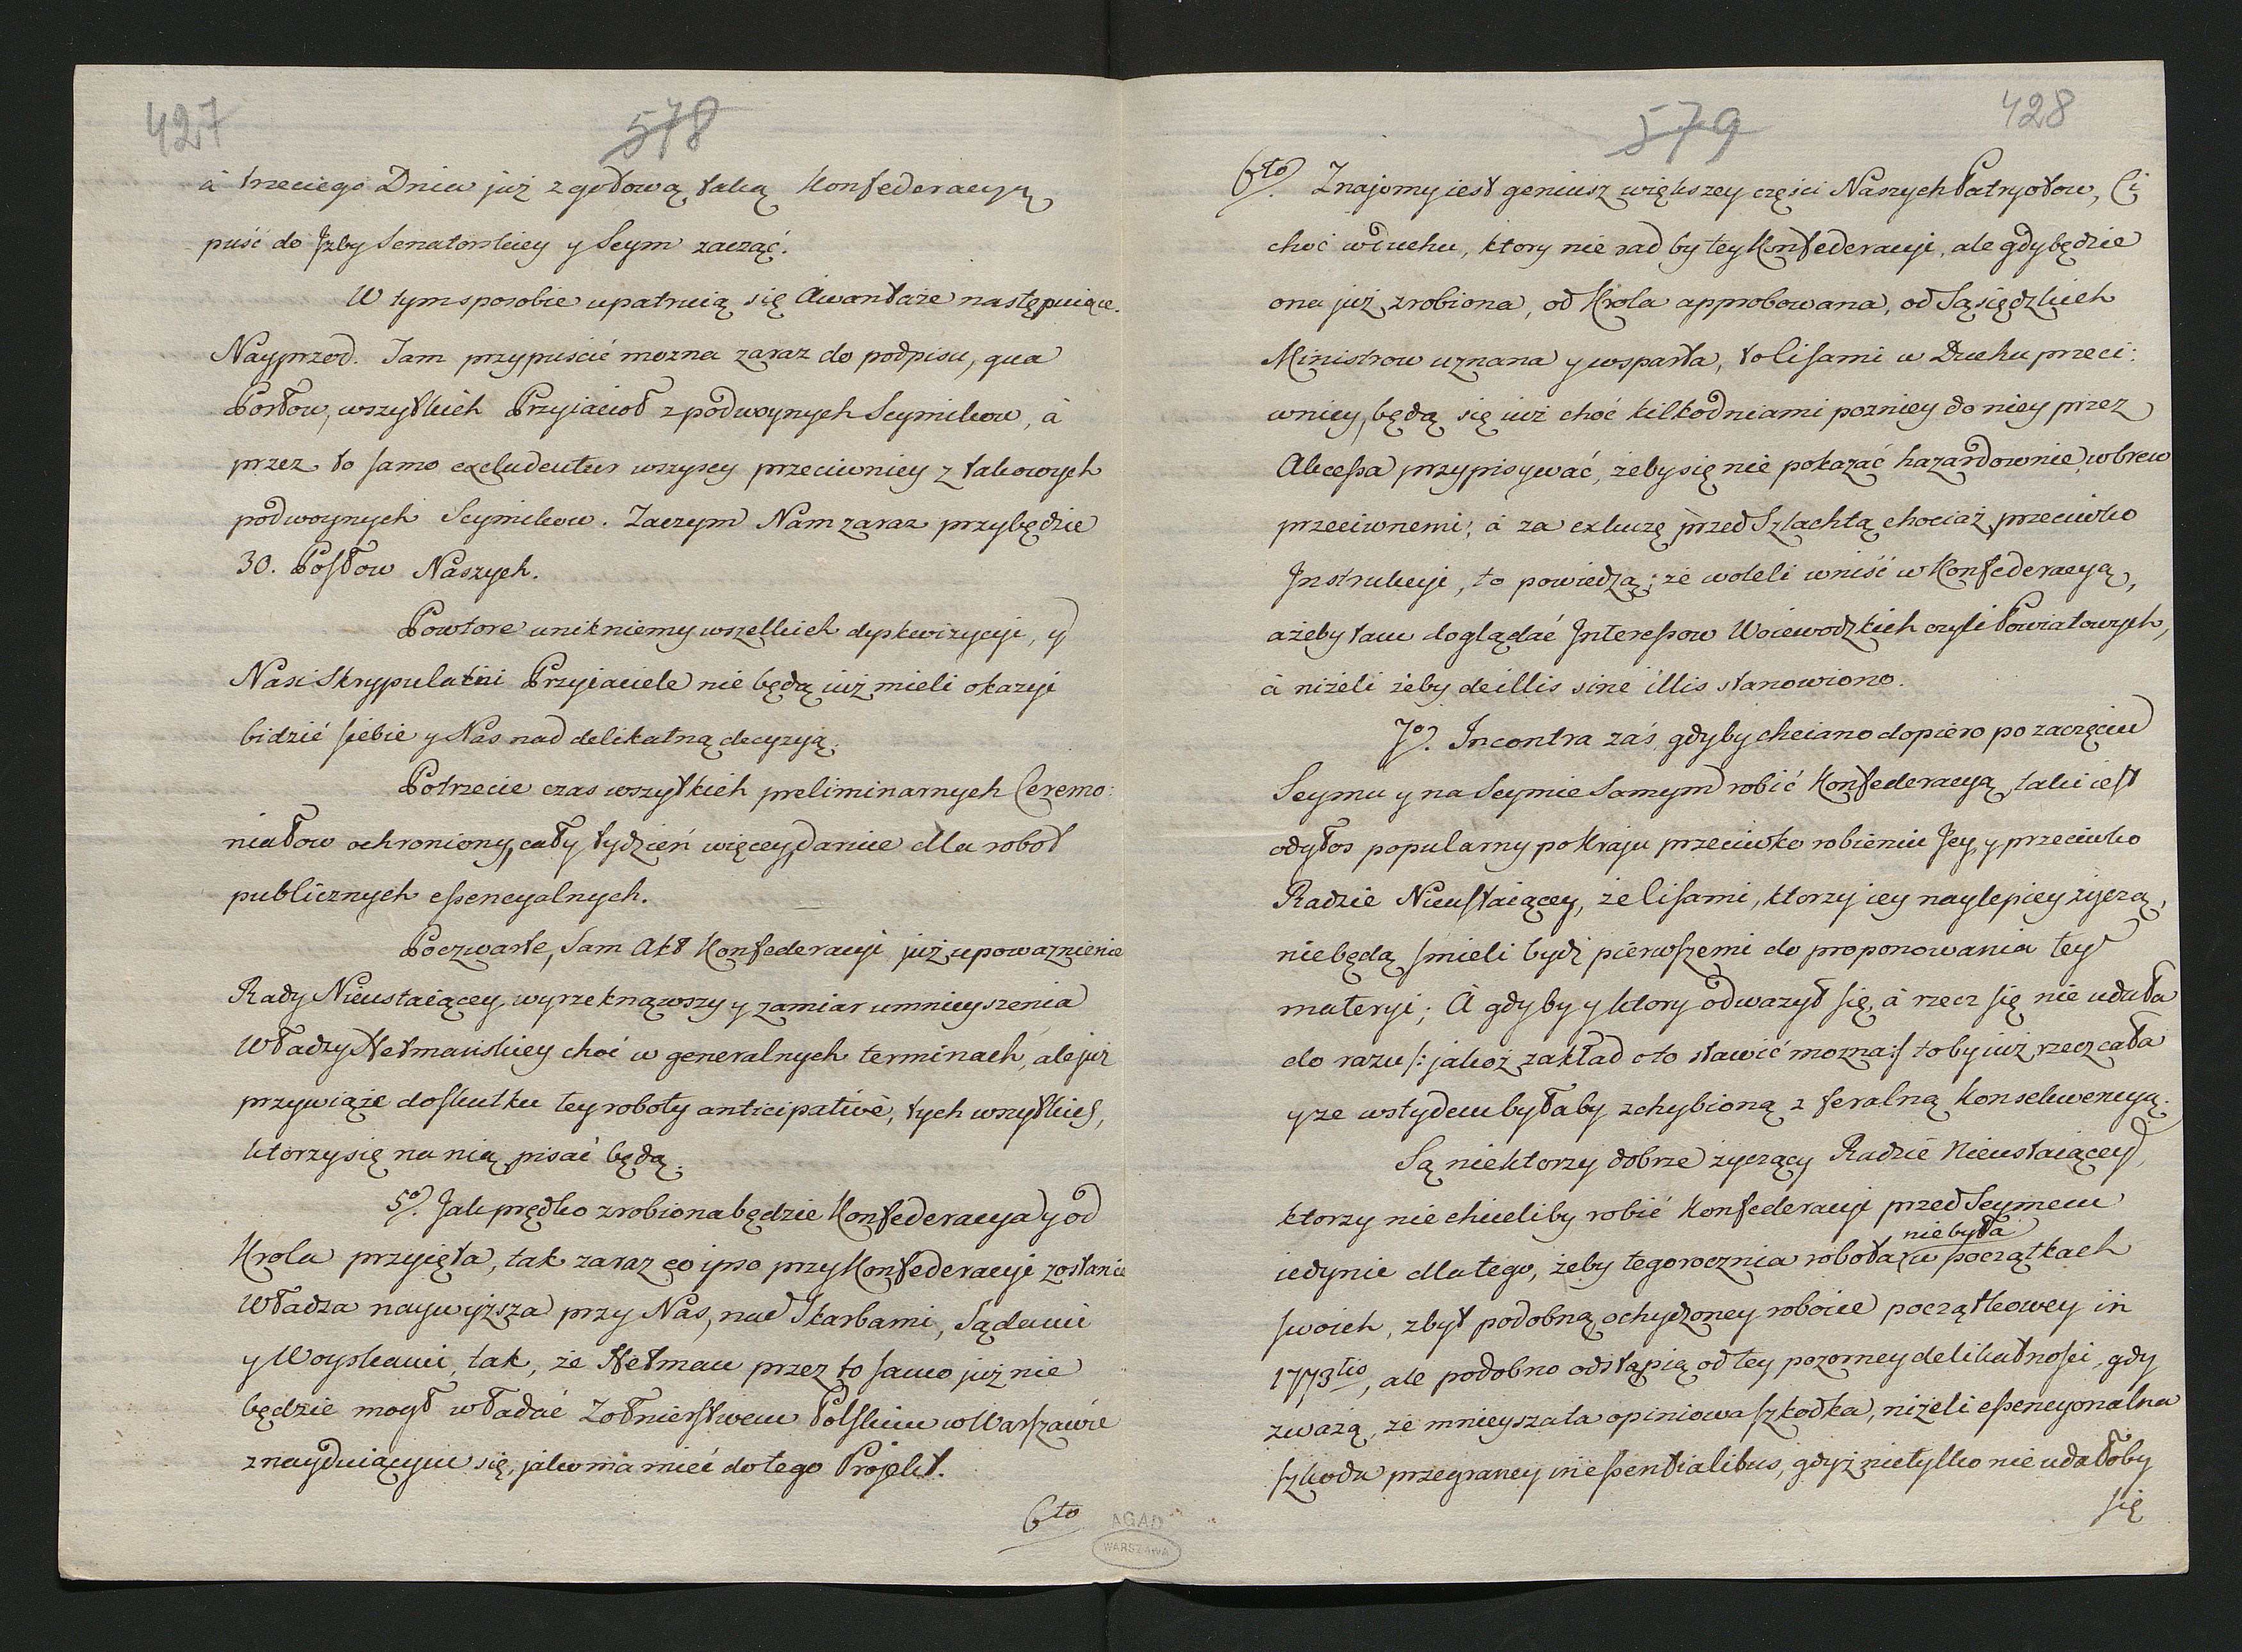 427
578
à trzeciego Dnia już z gotową taką Konfederacyą
puść do Izby Senatorskiey y Seym zacząć.
W tym sposobie upatruią się Awantaże następuiące.
Nayprzod. Tam przypuścić mozna zaraz do podpisu, qua
Posłow, wszystkich Przyiacioł z podwoynych Seymikow, à
przez to samo excludentur wszyscy przeciwnicy z takowych
podwoynych Seymikow. Zaczym Nam zaraz przybędzie
30. Posłow Naszych.
Powtore unikniemy wszelkich dyskwizycyi, y
Nasi Skrypulatni Przyiaciele nie będą iuż mieli okazyi
bidzić siebie y Nas nad delikatną decyzyą.
Potrzecie czas wszystkich preliminarnych Ceremo:
niałow ochroniony, cały tydzień więcey daruie dla robot
publicznych essencyalnych.
Poczwarte, Sam Akt Konfederacyi już upowaznienie
Rady Nieustaiącey wyrzeknąwszy y zamiar umnieyszenia
Władzy Hetmańskiey choć w generalnych terminach, ale już
przywiąże do skutku tey roboty anticipativè, tych wszystkich,
ktorzy się na nią pisać będą.
5o. Jak prędko zrobiona będzie Konfederacya y od
Krola przyięta, tak zaraz eo ipso przy Konfederacyi zostanie
Władza naywyższa przy Nas, nad Skarbami, Sądami
y Woyskami, tak, że Hetman przez to samo już nie
będzie mogł władać Zołnierstwem Polskim w Warszawie
znayduiącym się, jako ma mieć do tego Projekt.
6to
AGAD
WARSZAWA
579
428
6to. Znajomy iest geniusz większey części Naszych Patryotow, Ci
choć w duchu, ktory nie rad by tey Konfederacyi, ale gdy będzie
ona już zrobiona, od Krola approbowana, od Sąsiedzkich
Ministrow uznana y wsparta, to li sami w Duchu przeci:
wnicy, będą się iuż choć kilką dniami pozniey do niey przez
Akcessa przypisywać, żeby się nie pokazać hazardownie wbrew
przeciwnemi; à za exkuzę przed Szlachtą chociaż przeciwko
Instrukcyi, to powiedzą; że woleli wniść w Konfederacyą,
ażeby tam doglądać Interessow Woiewodzkich czyli Powiatowych,
à niżeli żeby de illis sine illis stanowiono.
7o. Incontra zaś, gdyby chciano dopiero po zaczęciu
Seymu y na Seymie Samym robić Konfederacyą, taki iest
odgłos popularny po Kraju przeciwko robieniu Jey, y przeciwko
Radzie Nieustaiącey, że li sami, ktorzy iey naylepiey życzą,
nie będą smieli bydź pierwszemi do proponowania tey
materyi; à gdyby y ktory odważył się, à rzecz się nie udała
do razu /: jakoż zakład o to stawić mozna :/ to by iuż rzecz cała
y ze wstydem byłaby zchybioną z feralną konsekwencyą.
Są niektorzy dobrze życzący Radzie Nieustaiącey,
ktorzy nie chcieliby robić Konfederacyi przed Seymem
nie była
iedynie dla tego, żeby tegorocznia robota w początkach
swoich, zbyt podobną ochydzoney robocie początkowey in
1773tio, ale podobno odstąpią od tey pozorney delikatności, gdy
zważą, że mnieysza ta opiniowa szkodka, niżeli essencyonalna
szkoda przegraney in essentialibus, gdyż nie tylko nie udałoby
się